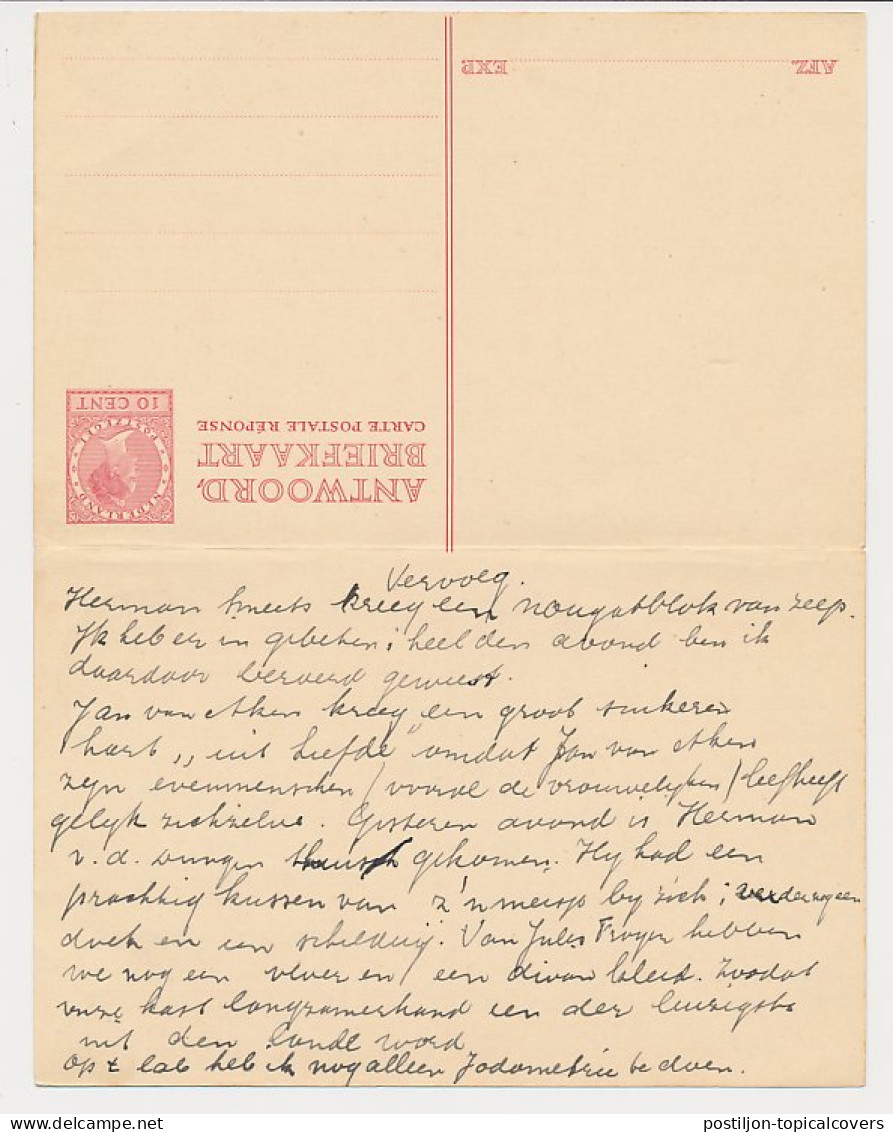 AFZ.
EXP.
ANTWOORD,
BRIEFKAART
CARTE POSTALE RÉPONSE
NEDERLAND
POSTZEGEL
10 CENT
Vervolg.
Herman Smeets kreeg een nougatblok van zeep.
Ik heb er in gebeten; heel den avond ben ik
daardoor beroerd geweest.
Jan van Aken kreeg een groot suikeren
hart „uit liefde" omdat Jan van Aken
zijn evenmenschen (vooral de vrouwelijken) liefheeft
gelijk zichzelve. Gisteren avond is Herman
v. d. gekomen. Hy had een
prachtig kussen van z'n meisje by zich; verder nog een
doek en een schildery. Van Jules hebben
we nog een vloer en een divan kleed. Zoodat
onze kast langzamerhand een der luizigste
uit den lande word
Op 't lab heb ik nog alleen Jodometrie te doen.
postiljon-topicalcovers